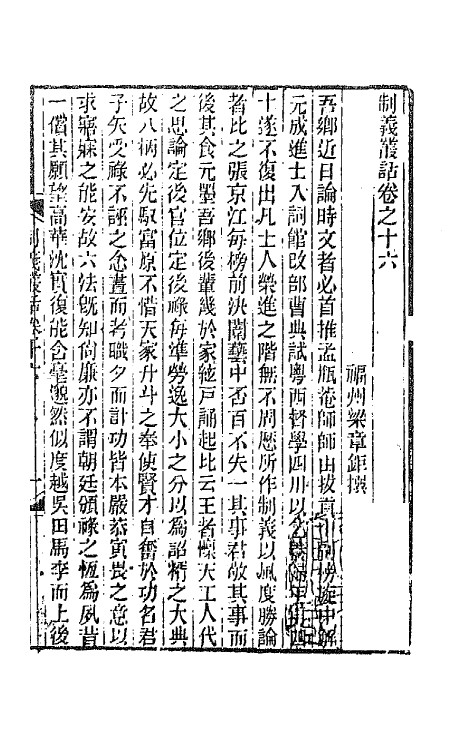 制義叢話卷之十六
福州梁章鉅撰
吾鄉近日論時文者必首推孟瓶菴師師由拔貢旋中解
元成進士入詞館改部曹典試粵西督學四川以
十遂不復出凡士人榮進之階無不周歷所作制義以風度勝論
者比之張京江每榜前決闈藝中否百不失一其事君敬其事而
後其食元墨吾鄉後輩幾於家絃戶誦起比云王者懍天工人代
之思論定後官位定後祿每準勞逸大小之分以爲詔糈之大典
故八柄必先馭富原不惜天家升斗之奉使賢才自奮於功名君
子矢受祿不誣之念晝而考職夕而計功皆本嚴恭寅畏之意以
求寤寐之能安故六法旣知尙廉亦不謂朝廷頒祿之恆爲夙昔
一償其願望高華沈實復能含毫邈然似度越吳田馬李而上後
制義叢話卷十六